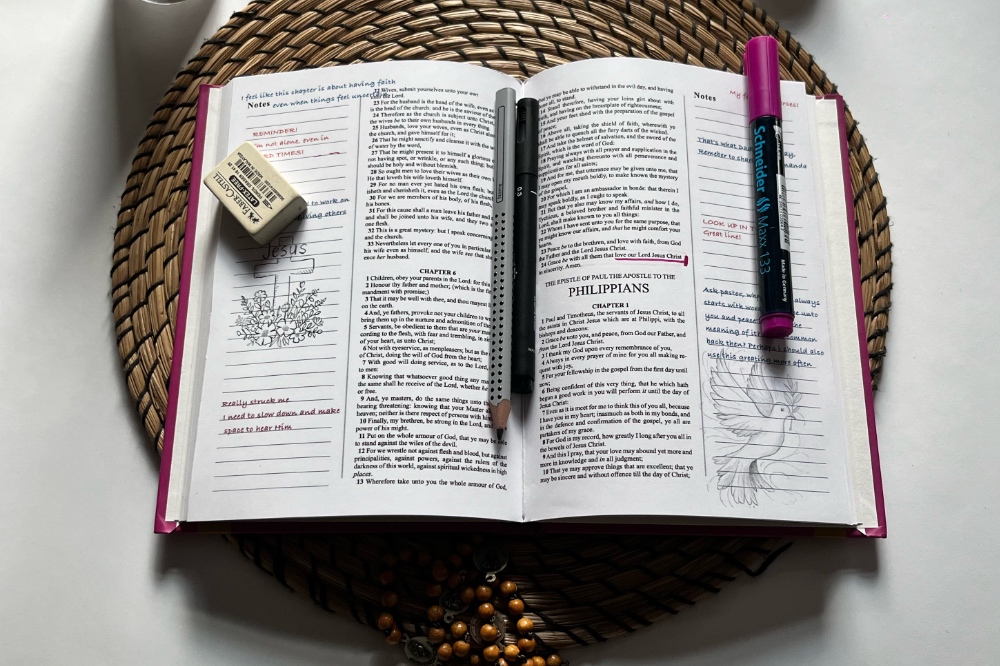 I feel like this chapter is about having faith
even when things feel
Notes
REMINDER!
I'm not alone, even in
TIMES!
FABER-CASTELL
to work on
others
Jesus
Really struck me
I need to slow down and make
space to hear Him
22 Wives, submit yourselves unto your own
the Lord.
23 For the husband is the head of the wife, even as
the head of the church: and he is the saviour of the
24 Therefore as the church is subject unto Christ,
the wives be to their own husbands in every thing.
25 Husbands, love your wives, even as Christ also
the church, and gave himself for it;
26 That he might sanctify and cleanse it with the
of water by the word,
27 That he might present it to himself a glorious
not having spot, or wrinkle, or any such thing; but
should be holy and without blemish.
28 So ought men to love their wives as their own
He that loveth his wife loveth himself.
29 For no man ever yet hated his own flesh; but
isheth and cherisheth it, even as the Lord the church:
30 For we are members of his body, of his flesh,
his bones.
31 For this cause shall a man leave his father and
and shall be joined unto his wife, and they two
one flesh.
32 This is a great mystery: but I speak concerning
and the church.
33 Nevertheless let every one of you in particular
his wife even as himself; and the wife see that she
ence her husband.
CHAPTER 6
1 Children, obey your parents in the Lord: for this
2 Honour thy father and mother; (which is the
mandment with promise;)
3 That it may be well with thee, and thou mayest
on the earth.
4 And, ye fathers, provoke not your children to
bring them up in the nurture and admonition of the
5 Servants, be obedient to them that are your
cording to the flesh, with fear and trembling, in
of your heart, as unto Christ;
6 Not with eyeservice, as menpleasers; but as the
of Christ, doing the will of God from the heart;
7 With good will doing service, as to the Lord,
to men:
8 Knowing that whatsoever good thing any man
the same shall he receive of the Lord, whether he
or free.
9 And, ye masters, do the same things unto
bearing threatening: knowing that your Master
heaven; neither is there respect of persons with him.
10 Finally, my brethren, be strong in the Lord, and
power of his might.
11 Put on the whole armour of God, that ye may be
to stand against the wiles of the devil.
12 For we wrestle not against flesh and blood, but against
principalities, against powers, against the rulers of the
darkness of this world, against spiritual wickedness in high
places.
13 Wherefore take unto you the whole armour of God,
that ye may be able to withstand in the evil day, and having
all, to stand.
14 Stand therefore, having your loins girt about with
and having on the breastplate of righteousness;
15 And your feet shod with the preparation of the gospel
of peace;
16 Above all, taking the shield of faith, wherewith ye
shall be able to quench all the fiery darts of the wicked.
17 And take the helmet of salvation, and the sword of the
which is the word of God:
18 Praying always with all prayer and supplication in the
and watching thereunto with all perseverance and
supplication for all saints;
19 And for me, that utterance may be given unto me, that
I may open my mouth boldly, to make known the mystery
of the gospel,
20 For which I am an ambassador in bonds: that therein I
may speak boldly, as I ought to speak.
21 But that ye also may know my affairs, and how I do,
Tychicus, a beloved brother and faithful minister in the
Lord, shall make known to you all things:
22 Whom I have sent unto you for the same purpose, that
ye might know our affairs, and that he might comfort your
hearts.
23 Peace be to the brethren, and love with faith, from God
the Father and the Lord Jesus Christ.
24 Grace be with all them that love our Lord Jesus Christ
in sincerity. Amen.
THE EPISTLE OF PAUL THE APOSTLE TO THE
PHILIPPIANS
CHAPTER 1
1 Paul and Timotheus, the servants of Jesus Christ, to all
the saints in Christ Jesus which are at Philippi, with the
bishops and deacons:
2 Grace be unto you, and peace, from God our Father, and
from the Lord Jesus Christ.
3 I thank my God upon every remembrance of you,
4 Always in every prayer of mine for you all making re-
quest with joy,
5 For your fellowship in the gospel from the first day until
now;
6 Being confident of this very thing, that he which hath
begun a good work in you will perform it until the day of
Jesus Christ:
7 Even as it is meet for me to think this of you all, because
I have you in my heart; inasmuch as both in my bonds, and
in the defence and confirmation of the gospel, ye all are
partakers of my grace.
8 For God is my record, how greatly I long after you all in
the bowels of Jesus Christ.
9 And this I pray, that your love may abound yet more and
more in knowledge and in all judgment;
10 That ye may approve things that are excellent; that ye
may be sincere and without offence till the day of Christ;
0.5
Notes
My
That's what
Remeber to
LOOK UP IN
Great line!
Ask pastor, why always
starts with unto
you and peace
meaning of it
back then? Perhaps I should also
use this greating more often
Schneider Maxx 133
Made in Germany